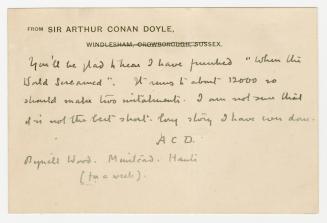 FROM SIR ARTHUR CONAN DOYLE,
WINDLESHAM, CROWBOROUGH, SUSSEX.
You'll be glad to hear I have finished "When the
World Screamed". It runs to about 12000 so
should make two instalments. I am not sure that
it is not the best short long story I have ever done.
A C D.
Bignell Wood. Minstead. Hants
(for a week).